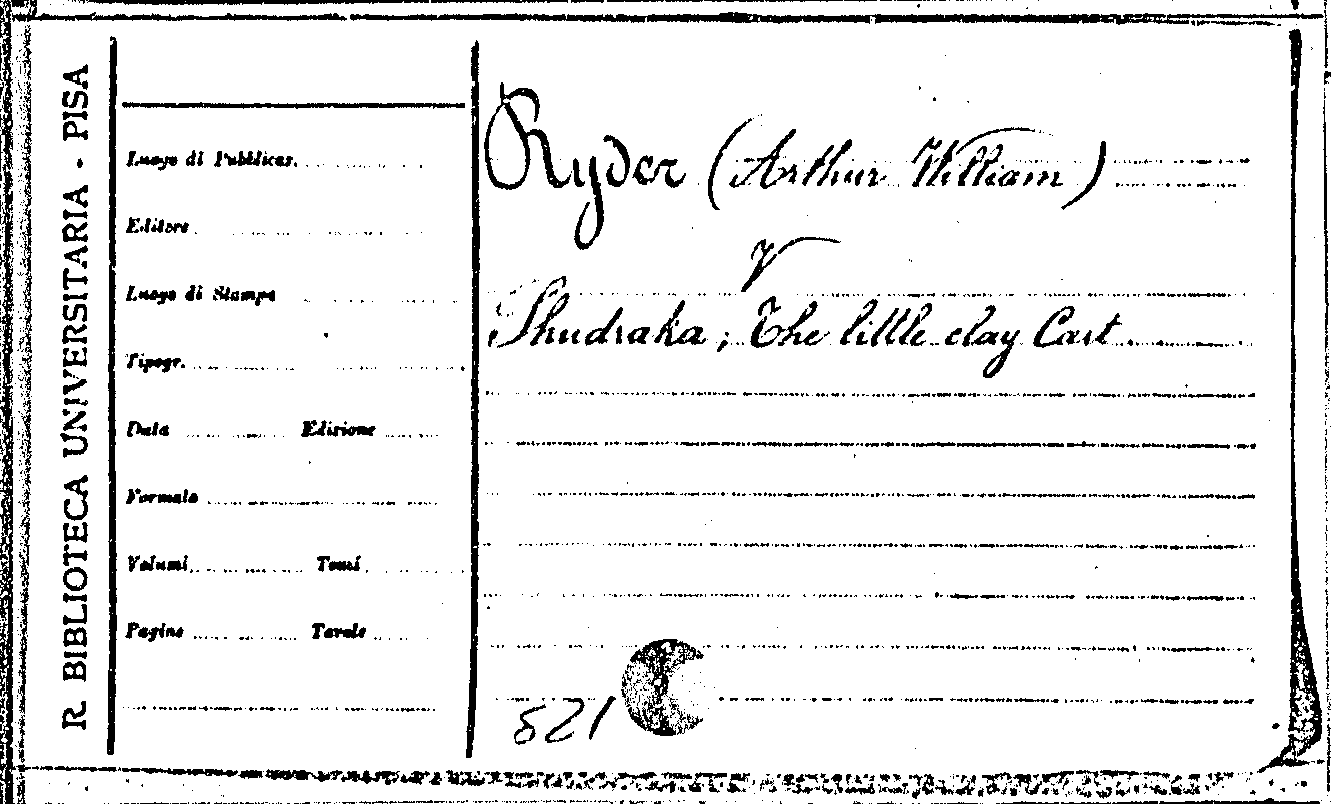 R. BIBLIOTECA UNIVERSITARIA - PISA
Luogo di Pubblicaz.
Editore
Luogo di Stampa
Tipogr.
Data Edizione
Formato
Volumi Tomi
Pagine Tavole
Ryder (Arthur William)
V
Shudraka; The little clay Cart.
821